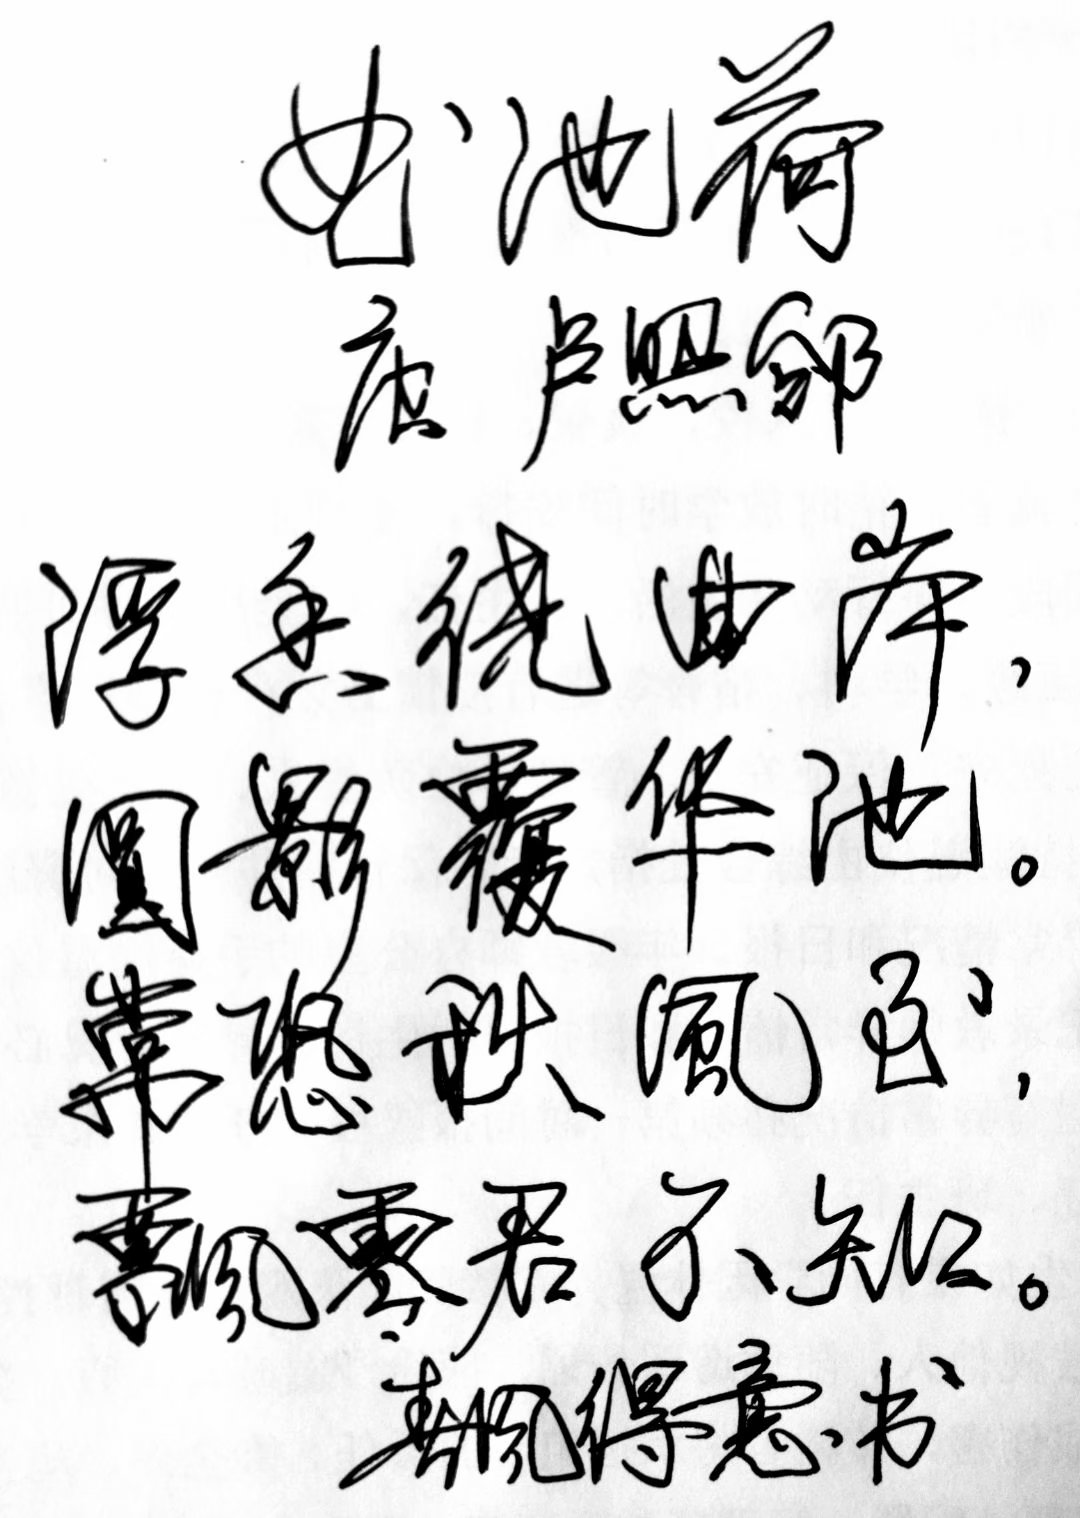 曲池荷
唐 卢照邻
浮香绕曲岸，
圆影覆华池。
常恐秋风早，
飘零君不知。
春风得意书